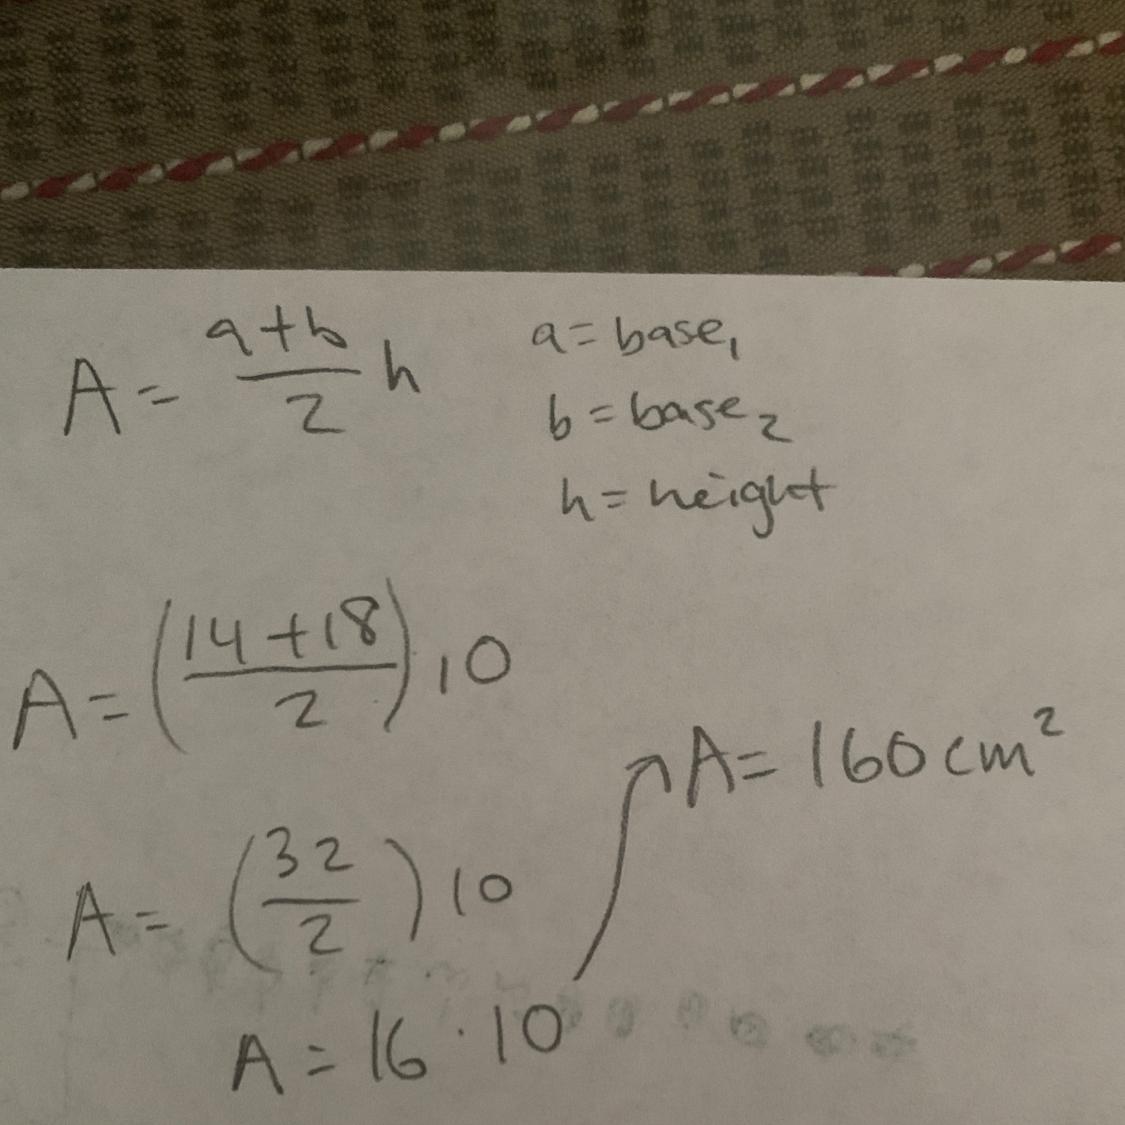 A = (a+b)/2 h
a = base₁
b = base₂
h = height
A = ((14+18)/2) 10
A = (32/2) 10
A = 16 · 10
A = 160 cm²